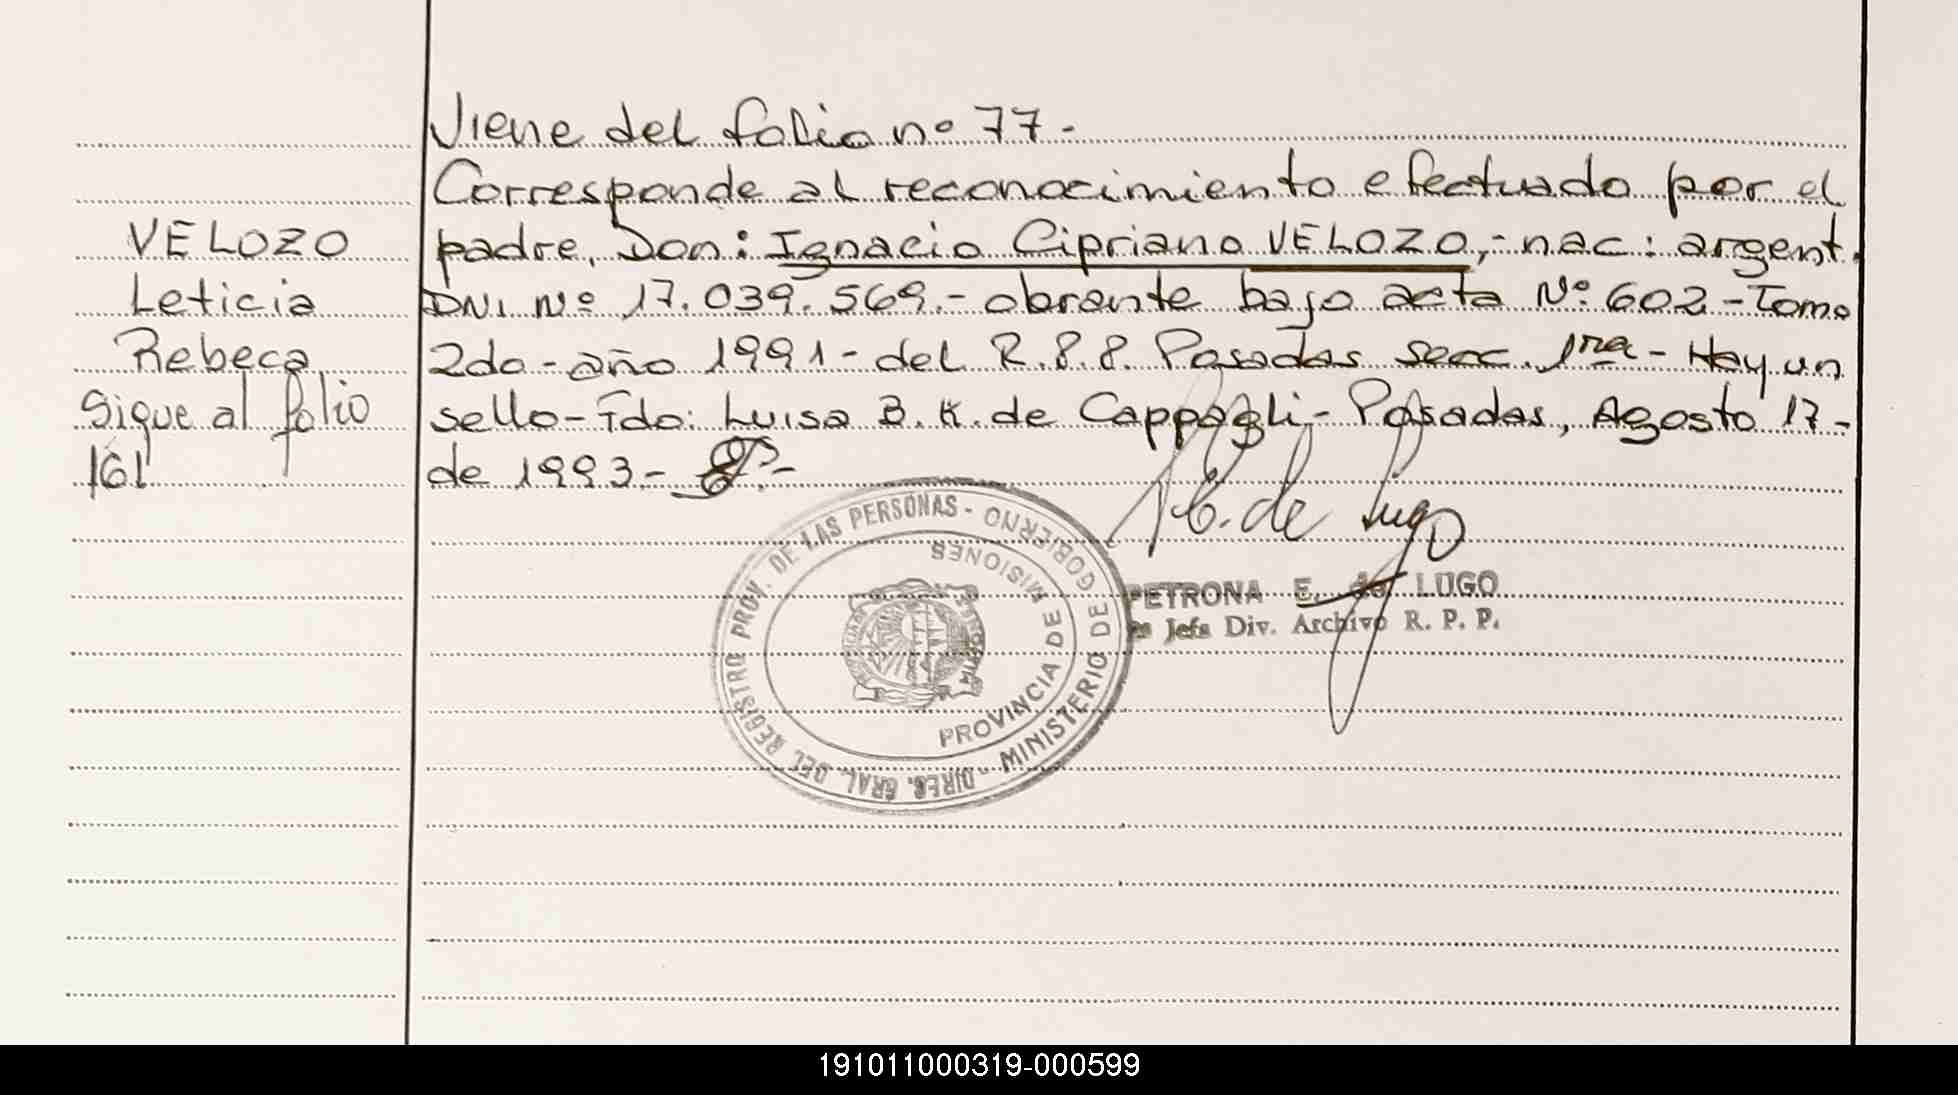 Viene del folio nº 77-
Corresponde al reconocimiento efectuado por el
VELOZO
padre, Don: Ignacio Cipriano VELOZO,- nac: argent.
Leticia
DNI Nº 17.039.569.- obrante bajo acta Nº 602-Tomo
Rebeca
2do-año 1991-del R.P.P. Posadas secc. 1ra- Hay un
Sigue al folio
sello-Fdo: Luisa B. K. de Cappagli- Posadas, Agosto 17-
161
de 1993-
de Lugo
DIREC. GRAL. DEL REGISTRO PROV. DE LAS PERSONAS - MINISTERIO DE GOBIERNO
PROVINCIA DE MISIONES
PETRONA E. de LUGO
Jefa Div. Archivo R. P. P.
191011000319-000599